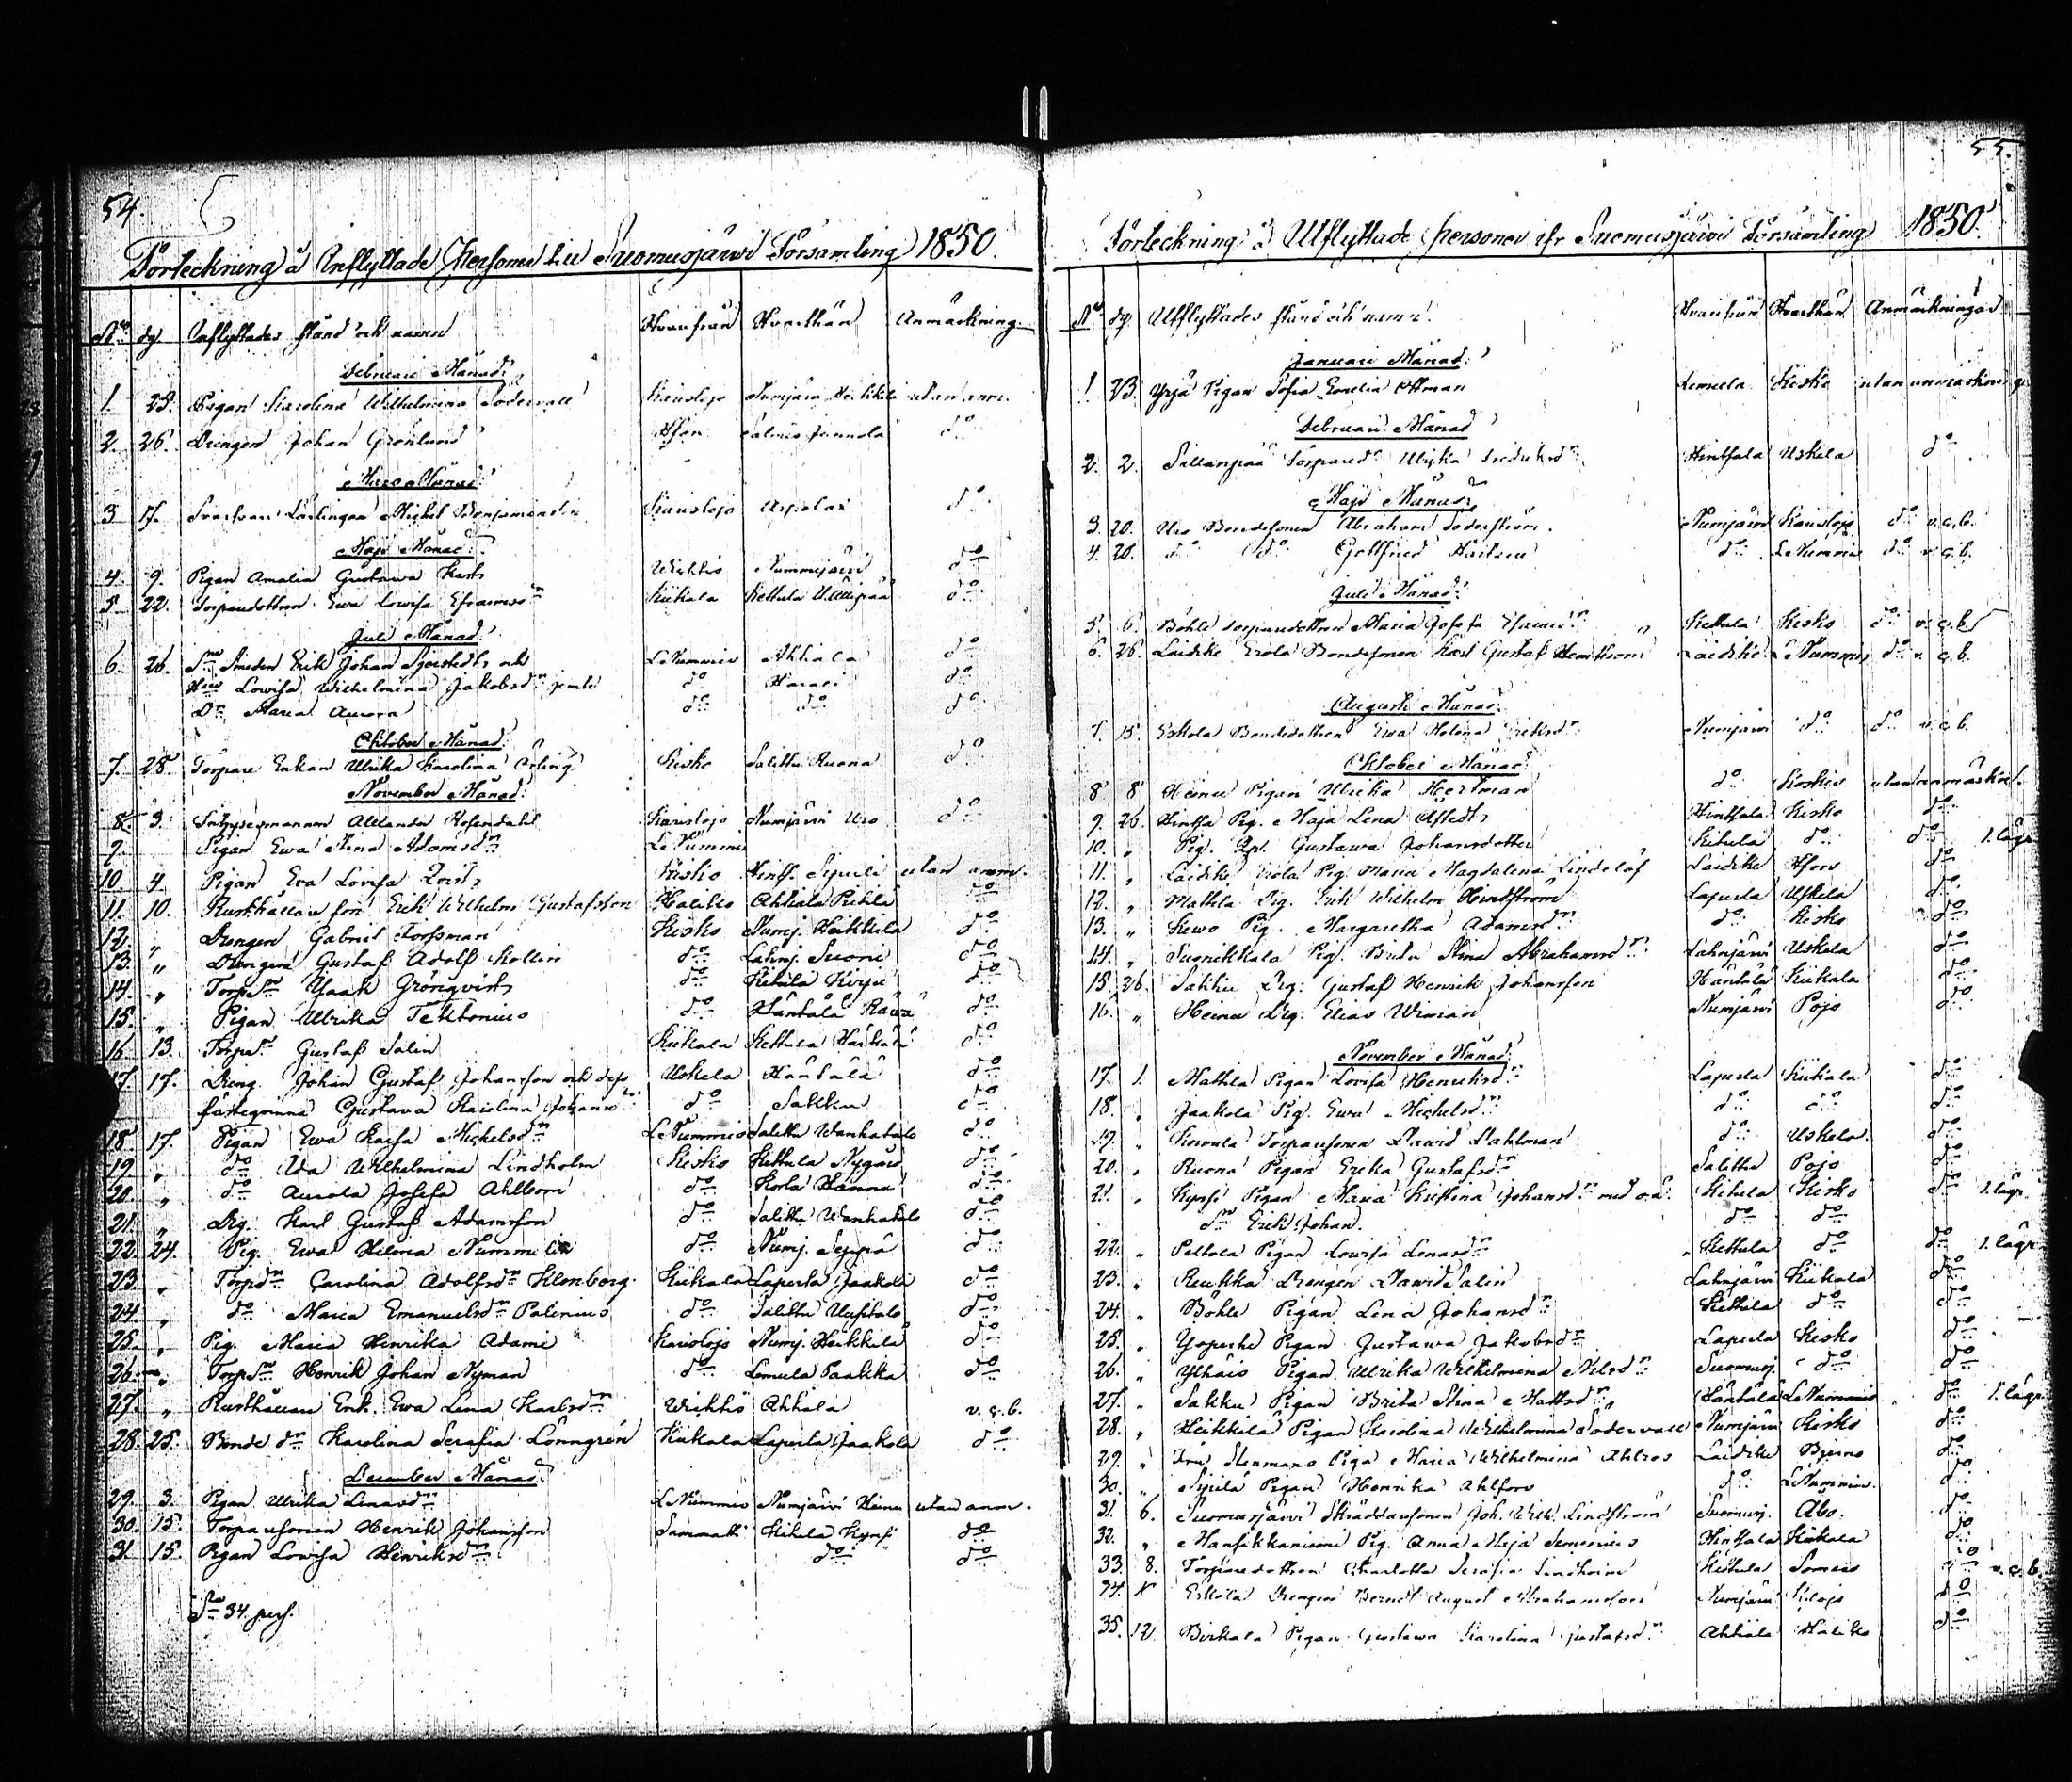 54.
Förteckning å Inflyttade Personer till Suomusjärwi Församling 1850.
No dg Inflyttades stånd och namn Hvarifrån Hvarthän Anmärkning.
Februari Månad.
1. 25. Pigan Karolina Wilhelmina Södervall Karislojo Numjärvi Heikkilä utan anm.
2. 26. Drengen Johan Grönlund Hfors Salmis Junnola do
Mars Månad.
3 17. Lärlingen Michel Benjaminsson Karislojo Arpalax do
Maji Månad.
4. 9. Pigan Amalia Gustawa Wichtis Nummijärvi do
5. 22. Torparedottren Ewa Lowisa Efraimsdr Kiikala Kettula do
Juli Månad.
6. 26. Smeden Erik Johan Sjöstedt och L Nummis Ahtiala do
Hu Lowisa Wilhelmina Jakobsdr jemte do do
Dr Maria Aurora do do do
Oktober Månad.
7. 28. Torpare Enkan Ulrika Karolina Arling Kisko Salittu Ruona do
November Månad.
8. 3. Alexander Rosendahl Karislojo Numjärvi Uro do
9. Pigan Ewa Stina Adamsdr L Nummis
10. 4. Pigan Eva Lovisa Qvist Kisko Hints. Sipilä utan anm.
11. 10. Rusthållare son Erik Wilhelm Gustafsson Halikko Ahtiala Pietilä do
12. „ Drengen Gabriel Forssman Kisko Numj. Heikkilä do
13. „ Drengen Gustaf Adolf Kollin do Lahnj. Suoni do
14. „ Torpsn Isaak Grönqvist do Kitula do
15. „ Pigan Ulrika Tektonius do Häntälä do
16. 13. Torpsn Gustaf Salin Kiikala Kettula do
17. 17. Dreng. Johan Gustaf Johansson och dess Uskela Häntälä do
fästeqvinna Gustava Karolina Johansdr do Sakku do
18 17. Pigan Ewa Kaisa Michelsdr L Nummis Salittu Wanhatalo do
19. „ do Ida Wilhelmina Lindholm Kisko Kettula Nygård do
20. „ do Aurora Josefa Ahlbom do do
21. „ Drg. Karl Gustaf Adamsson do Salittu Wanhatalo do
22. 24. Pig. Ewa Helena Nummelin do Numj. Seppä do
23. „ Torpdr Carolina Adolfsdr Klenberg Kiikala Laperla Jaakola do
24. „ do Maria Emanuelsdr Palenius do Salittu Uusitalo do
25. „ Pig. Maria Henrika Adami Karislojo Numj. Heikkilä do
26. „ Torpsn Henrik Johan Nyman do Lemula Paakka do
27. „ Rusthållare Enk. Ewa Lena Karlsdr Wichtis Ahtiala v. c. b.
28. 25. Bonde dr Karolina Serafia Lönngrén Kiikala Laperla Jaakola do
December Månad.
29. 3. Pigan Ulrika Linasdr L Nummis Numjärvi Heinu utan anm.
30. 15. Torparesonen Henrik Johansson Sammatti Kitula Kynsi do
31. 15. Pigan Lovisa Henriksdr do do
Sma 34 pers.
55.
Förteckning å Utflyttade personer ifr. Suomusjärvi Församling 1850.
No dg. Utflyttades stånd och namn. Hvarifrån Hvarthän Anmärkningar
Januari Månad.
1. 23. Yrjä Pigan Sofia Emelia Öhman Lemula Kisko utan anmärkning
Februari Månad
2. 2. Sillanpää Torparedr Ulrika Fredriksdr Hintsala Uskela do
Maji Månad.
3. 20. Uro Bondesonen Abraham Söderström. Numjärvi Karislojo do v. c. b.
4. 20. do do Gottfried do L Nummis do v. c. b.
Juli Månad.
5. 6. Böhle torparedottren Maria Josefa Kettula Kisko do v. c. b.
6. 26. Laidike Erola Bondesonen Karl Gustaf Laidike L Nummis do v. c. b.
Augusti Månad.
7. 15. Eskola Bondedottren Ewa Helena Eriksdr Numjärvi do do v. c. b.
Oktober Månad.
8. 8 Heinu Pigan Ulrika Hertman do Koskis utan anmärkn.
9. 26. Hintsa Pig. Maja Lena Öfstedt Hintsala Kisko do
10. „ Pig. Gustawa Johansdotter Kitula do do 1. lägr.
11. „ Laidike Erola Pig. Maria Magdalena Lindelöf Laidike Hfors do
12. „ Mattila Drg. Erik Wilhelm Hindström Laperla Uskela do
13. „ Kewo Pig. Margaretha Adamsdr do Kisko do
14. „ Suonikkala Pig. Brita Stina Abrahamsdr Lahnjärvi Uskela do
15. 26. Sakku Drg. Gustaf Henrik Johansson Häntälä Kiikala do
16. „ Heinu Drg. Elias Wiman Numjärvi Pojo do
November Månad.
17. 1. Mattila Pigan Lovisa Henriksdr Laperla Kiikala do
18. „ Jaakola Pig. Ewa Michelsdr do do do
19. „ Torparesonen David Dahlman do Uskela do
20. „ Ruona Pigan Erika Gustafsdr Salittu Pojo do
21. „ Kynsi Pigan Maria Kristina Johansdr med o. ä. Kitula Kisko do 1. lägr.
Sn Erik Johan. do do
22. „ Peltola Pigan Lovisa Lenasdr Kettula do do 1. lägr.
23. „ Reukka Drengen David Salin Lahnjärvi Kiikala do
24. „ Böhle Pigan Lena Johansdr Kettula do do
25. „ Pigan Gustawa Jakobsdr Laperla Kisko do
26. „ Pigan Ulrika Wilhelmina Nilsdr Suomusj. do do
27. „ Sakku Pigan Brita Stina Mattsdr Häntälä L Nummis do 1. lägr.
28. „ Heikkilä Pigan Karolina Wilhelmina Södervall Numjärvi Kisko do
29. „ Stenmans Piga Maria Wilhelmina Ahlros Laidike Bjerno do
30. „ Sipilä Pigan Henrika Ahlfors do L Nummis. do
31. 6. Suomusjärvi Skräddaresonen Joh. Wilh. Lindström Suomusj. Åbo. do
32. „ Pig. Anna Maja Simenius Hintsala Kiikala do
33. 8. Torparedottren Charlotta Serafia Lindholm Kettula Somero do v. c. b.
34. „ Eskola Drengen Berndt August Abrahamsson Numjärvi K lojo do
35. 12. Pirkala Pigan Gustawa Karolina Gustafsdr Ahtiala Halikko do